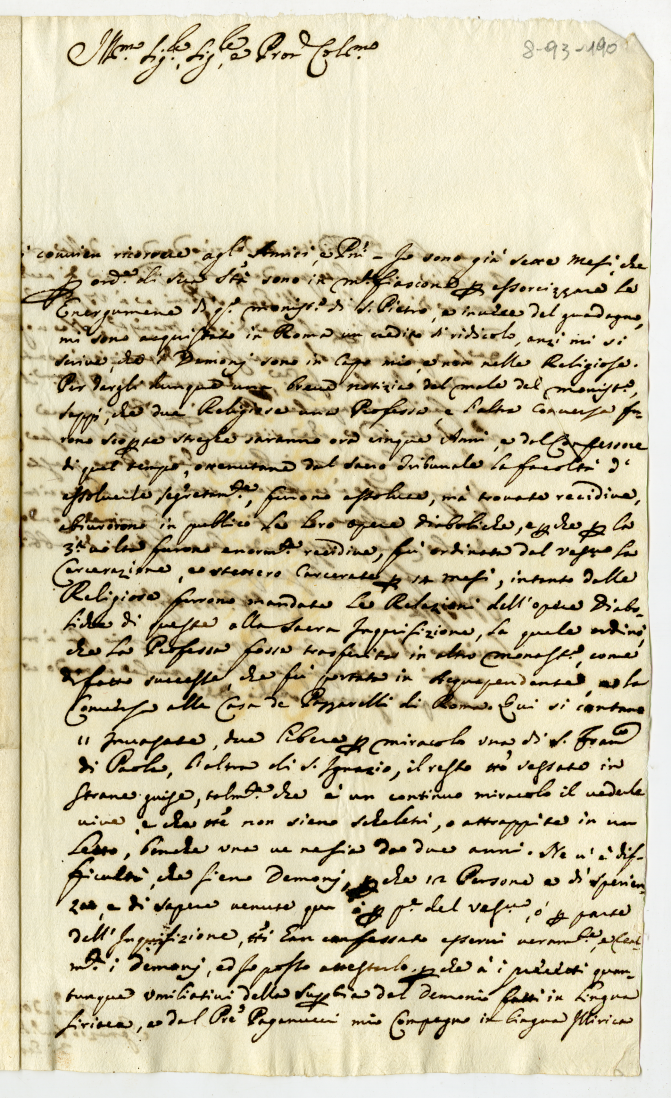 8-93-190
Ill.mo Sig.re, Sig.re, e Pron Col.mo
i convien ricorrere agl'Amici, e Pii - Io sono già sette mesi, che
ord.e di Sua Stà sono in M.te Fiascone essorcizzare le
Energumene di q.o monist.o di S. Pietro, e invece del guadagno,
mi sono acquistato in Roma un credito di ridicolo, anzi mi si
scrive, che i Demonj sono in Capo mio, e non nelle Religiose.
Per dargli dunque una breve notizia del male del monist.o,
sappi, che due Religiose una Professa, e l'altra Conversa fu-
rono scop.te streghe saranno ora cinque Anni, e dal Confessore
di quel tempo, ottenutane dal Sacro Tribunale la facoltà d'
assolverle segretam.e, furono assolute, mà trovate recidive,
abiurorono in publico le loro opere diaboliche, e perche per la
3.a volta furono enorm.e recidive, fù ordinata dal vesc.o la
Carcerazione, e stettero Carcerate per 14 mesi, intanto dalle
Religiose furrono mandate le Relazioni dell'opere Diabo-
liche di queste alla Sacra Inquisizione, la quale ordinò,
che la Professa fosse trasferita in altro monast.o, come
di fatto successe, che fù portata in Acquapendente, e la
Conversa alla Casa de Pazzarelli di Roma. Qui si contano
11 Invasate, due libere per miracolo una di S. Fran.co
di Paola, l'altra di S. Ignazio, il resto tt.e vessate in
strane guise, talm.e che è un continuo miracolo il vederle
vive e che tt.e non sieno scheletri, o attrappite in un
Letto, benche una ve ne sia da due anni. Ne v'è dif-
ficultà, che sieno Demonj, perche 12 Persone e di sperien-
za, e di sapere venute qua ò per p.e del vesc.o, ò per parte
dell'Inquisizione, tt.i han confessato esservi veram.e, e real
m.e i Demonj, ed Io posso attestarlo, perche à i precetti quan-
tunque umiliativi della superbia del demonio fatti in lingua
siriaca, e dal Pre Paganucci mio Compagno in lingua Illirica